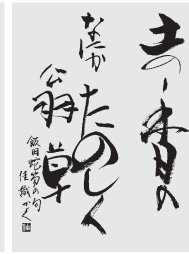 土の香の
なにか
たのしく
翁草
飯田蛇笏の句
佳織かく